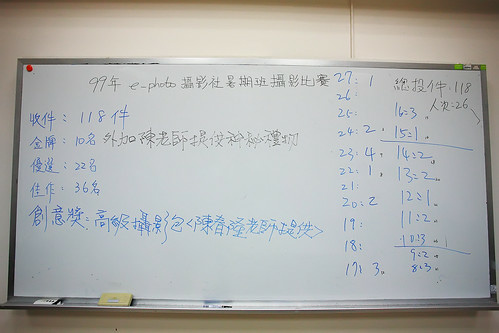 99年 e-photo 攝影社暑期班攝影比賽
收件：118件
金牌：10名 外加陳老師提供神秘禮物
優選：22名
佳作：36名
創意獎：高級攝影包<陳育瀅老師提供>
27：1
26：
25：
24：2
23：4
22：1
21：
20：2
19：
18：
17：3
總投件：118
人次：26
16=3
15=1
14=2
13=2
12=1
11=2
10=3
9=2
8=3